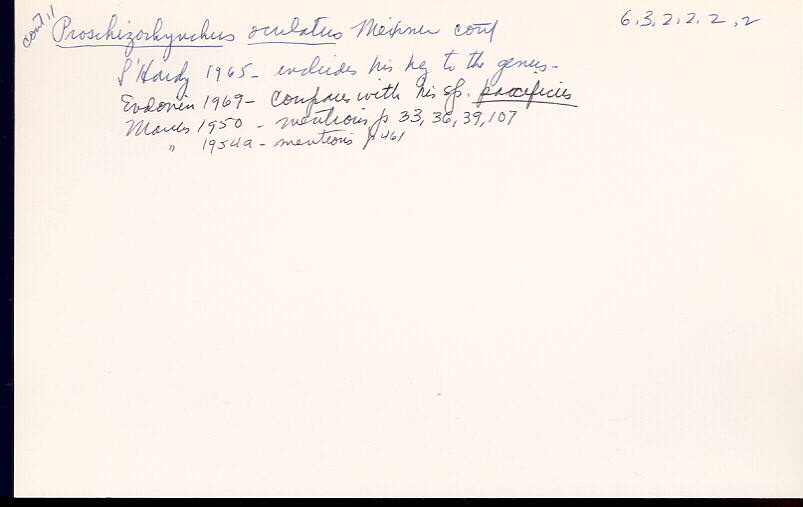 cont'd Proschizorhynchus oculatus Meixner cont 6.3.2.2.2.2
L'Hardy 1965 - includes his key to the genus -
Evdonin 1969 - Compares with his sp. pacificus
Marcus 1950 - mentions p 33, 36, 39, 107
" 1954a - mentions p 461